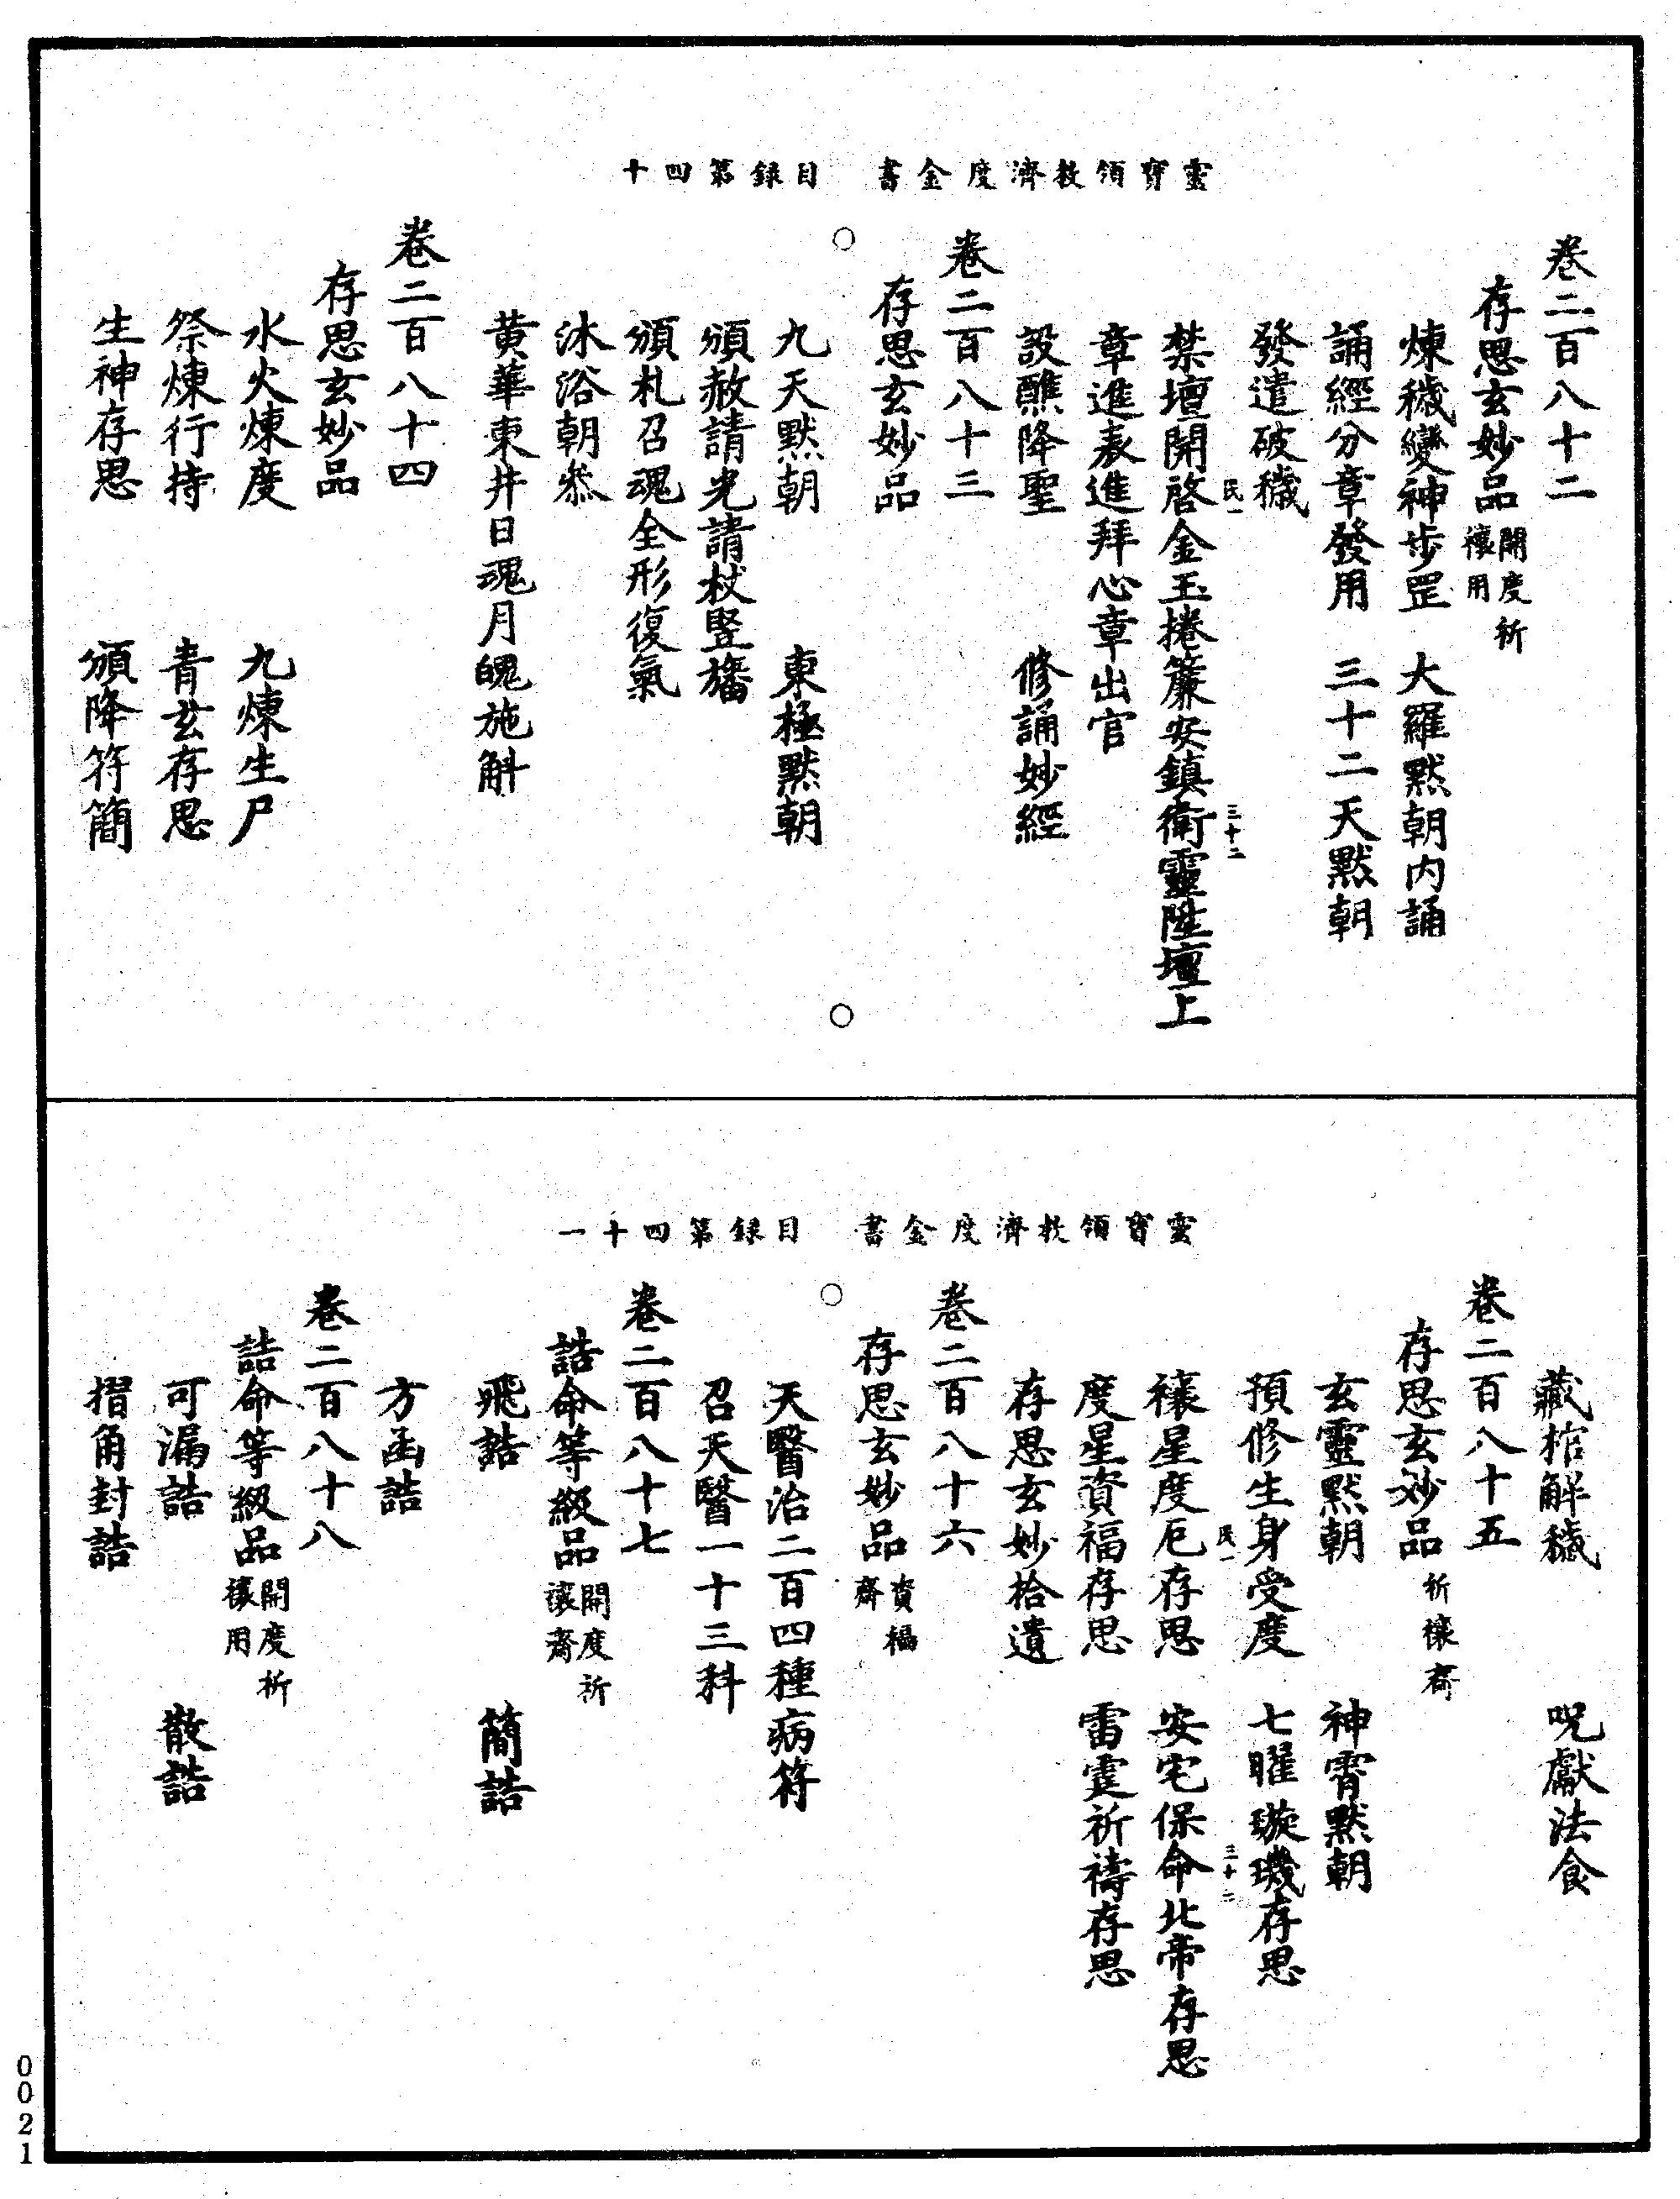 靈寶領教濟度金書　目録第四十
卷二百八十二
存思玄妙品 開度祈禳用
煉穢變神步罡　大羅默朝内誦
誦經分章發用　三十二天默朝
發遣破穢
民一　三十二
禁壇開啓金玉捲簾安鎮衛靈陞壇上
章進表進拜心章出官
設醮降聖　修誦妙經
卷二百八十三
存思玄妙品
九天默朝　東極默朝
頒赦請光請杖竪旛
頒札召魂全形復氣
沐浴朝叅
黄華東井日魂月魄施斛
卷二百八十四
存思玄妙品
水火煉度　九煉生尸
祭煉行持　青玄存思
生神存思　頒降符簡
靈寶領教濟度金書　目録第四十一
藏棺解穢　呪獻法食
卷二百八十五
存思玄妙品 祈禳齋
玄靈默朝　神霄默朝
預修生身受度　七曜璇璣存思
民一　三十二
禳星度厄存思　安宅保命北帝存思
度星資福存思　雷霆祈禱存思
存思玄妙拾遺
卷二百八十六
存思玄妙品 資福齋
天醫治二百四種病符
召天醫一十三科
卷二百八十七
誥命等級品 開度祈禳齋
飛誥　簡誥
方函誥
卷二百八十八
誥命等級品 開度祈禳用
可漏誥　散誥
摺角封誥
0021